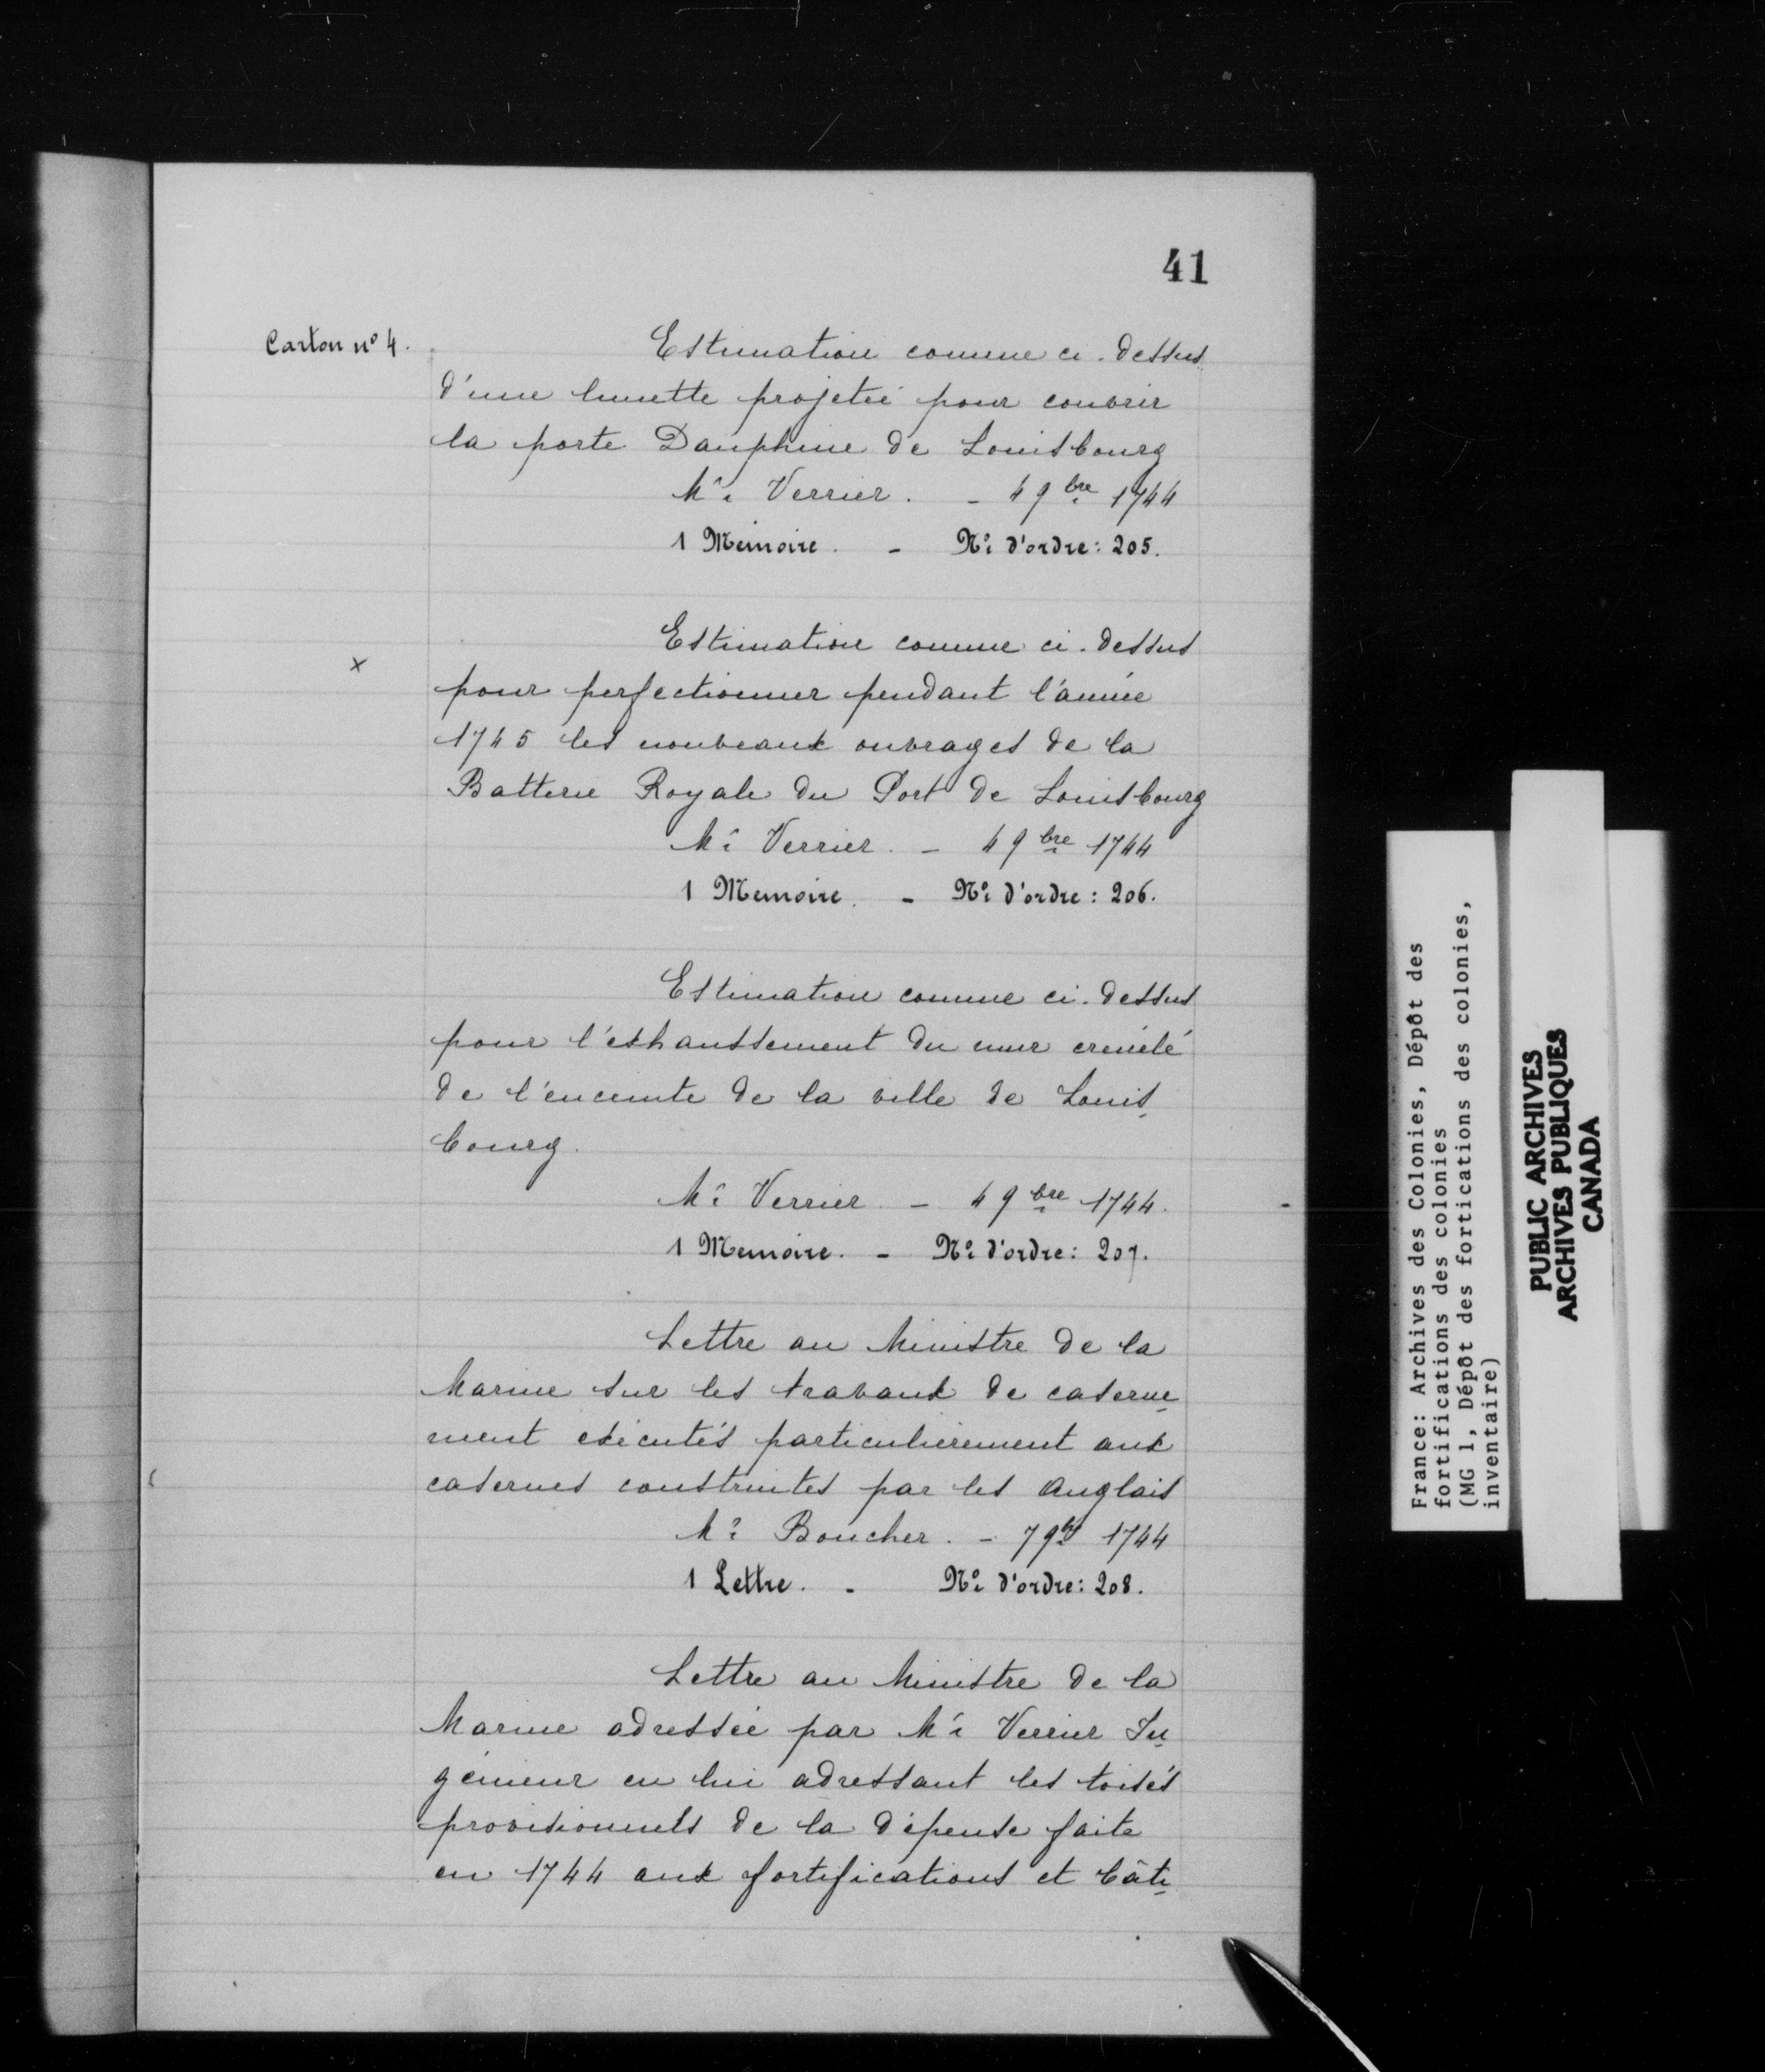 41
Carton nº 4.
Estimation comme ci-dessus
d'une lunette projetée pour couvrir
la porte Dauphine de Louisbourg
Mr. Verrier. - 4 9bre 1744
1 Mémoire. - Nº d'ordre: 205.
Estimation comme ci-dessus
x
pour perfectionner pendant l'année
1745 les nouveaux ouvrages de la
Batterie Royale du Port de Louisbourg
Mr. Verrier. - 4 9bre 1744
1 Memoire. - Nº d'ordre: 206.
Estimation comme ci-dessus
pour l'exhaussement du mur crénelé
de l'enceinte de la ville de Louis-
bourg.
Mr. Verrier - 4 9bre 1744.
1 Memoire. - Nº d'ordre: 207.
Lettre au Ministre de la
Marine sur les travaux de caserne-
ment exécutés particulièrement aux
casernes construites par les Anglais
Mr. Boucher. - 7 9bre 1744
1 Lettre. - Nº d'ordre: 208.
Lettre au Ministre de la
Marine adressée par Mr. Verrier In-
génieur en lui adressant les toisés
provisionnels de la dépense faite
en 1744 aux fortifications et bâti-
France: Archives des Colonies, Dépôt des
fortifications des colonies
(MG 1, Dépôt des fortications des colonies,
inventaire)
PUBLIC ARCHIVES
ARCHIVES PUBLIQUES
CANADA